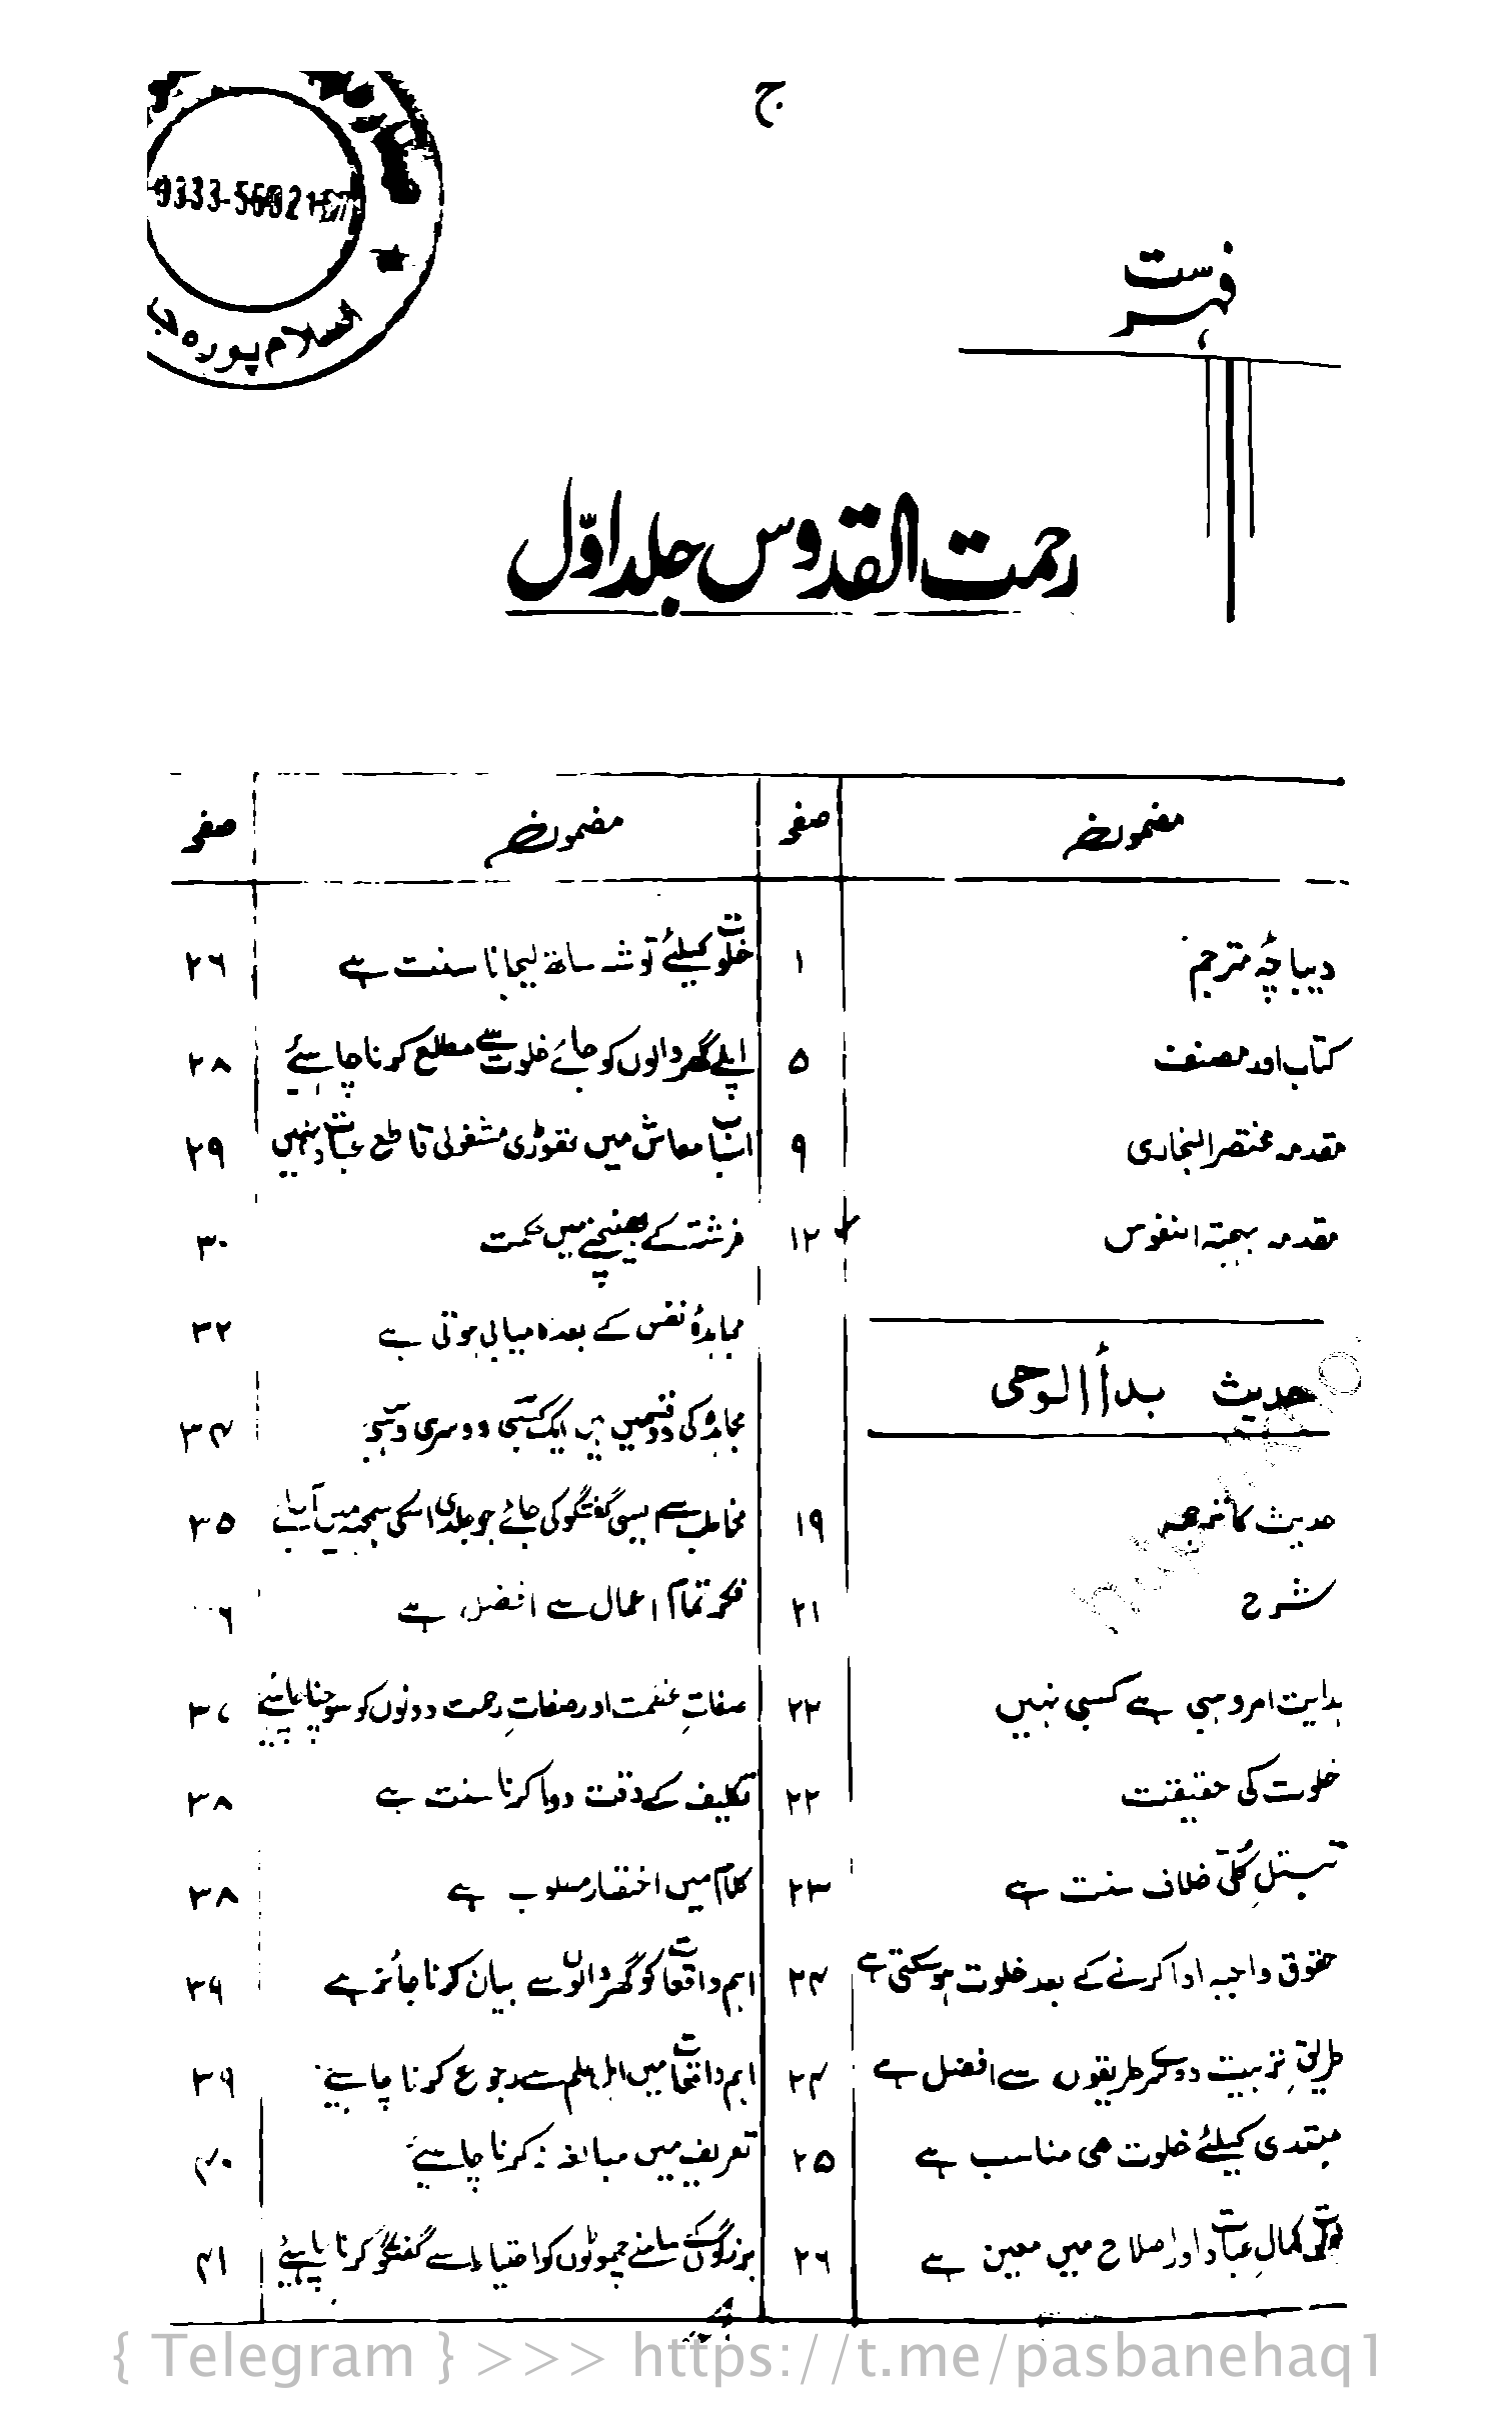 ج
0333-5692157
اسلام پورہ ج
فہرست
رحمت القدوس جلد اوّل
مضمون صفحہ
دیباچہ مترجم ۱
کتاب اور مصنف ۵
مقدمہ مختصر البخاری ۹
مقدمہ بہجۃ النفوس ۱۲
حدیث بدأ الوحی
حدیث کا ترجمہ ۱۹
شرح ۲۱
ہدایت امر وہبی ہے کسبی نہیں ۲۲
خلوت کی حقیقت ۲۲
تبتلِ کلی خلاف سنت ہے ۲۳
حقوق واجبہ ادا کرنے کے بعد خلوت ہوسکتی ہے ۲۴
طریقِ تربیت دوسرے طریقوں سے افضل ہے ۲۴
مبتدی کیلئے خلوت ھی مناسب ہے ۲۵
خلوت کمالِ عبادت اور اصلاح میں معین ہے ۲۶
مضمون صفحہ
خلوت کیلئے توشہ ساتھ لیجانا سنت ہے ۲۶
اپنے گھر والوں کو جائے خلوت سے مطلع کرنا چاہیئے ۲۸
اسباب معاش میں تھوڑی مشغولی قاطع عبادت نہیں ۲۹
فرشتہ کے بھینچنے میں حکمت ۳۰
مجاہدۂ نفس کے بعد کامیابی ہوتی ہے ۳۲
مجاہدہ کی دو قسمیں ہیں ایک کسبی دوسری وہبی ۳۴
مخاطب سے ایسی گفتگو کی جائے جو جلدی اسکی سمجھ میں آجائے ۳۵
فکر تمام اعمال سے افضل ہے ۶
صفاتِ عظمت اور صفاتِ رحمت دونوں کو سوچنا چاہیئے ۳۷
تکلیف کے وقت دوا کرنا سنت ہے ۳۸
کلام میں اختصار مطلوب ہے ۳۸
اہم واقعات کو گھر والوں سے بیان کرنا جائز ہے ۳۹
اہم واقعات میں اہل علم سے رجوع کرنا چاہیئے ۳۹
تعریف میں مبالغہ نہ کرنا چاہیئے ۴۰
بزرگوں کے سامنے چھوٹوں کو احتیاط سے گفتگو کرنا چاہیئے ۴۱
{ Telegram } >>> https://t.me/pasbanehaq1